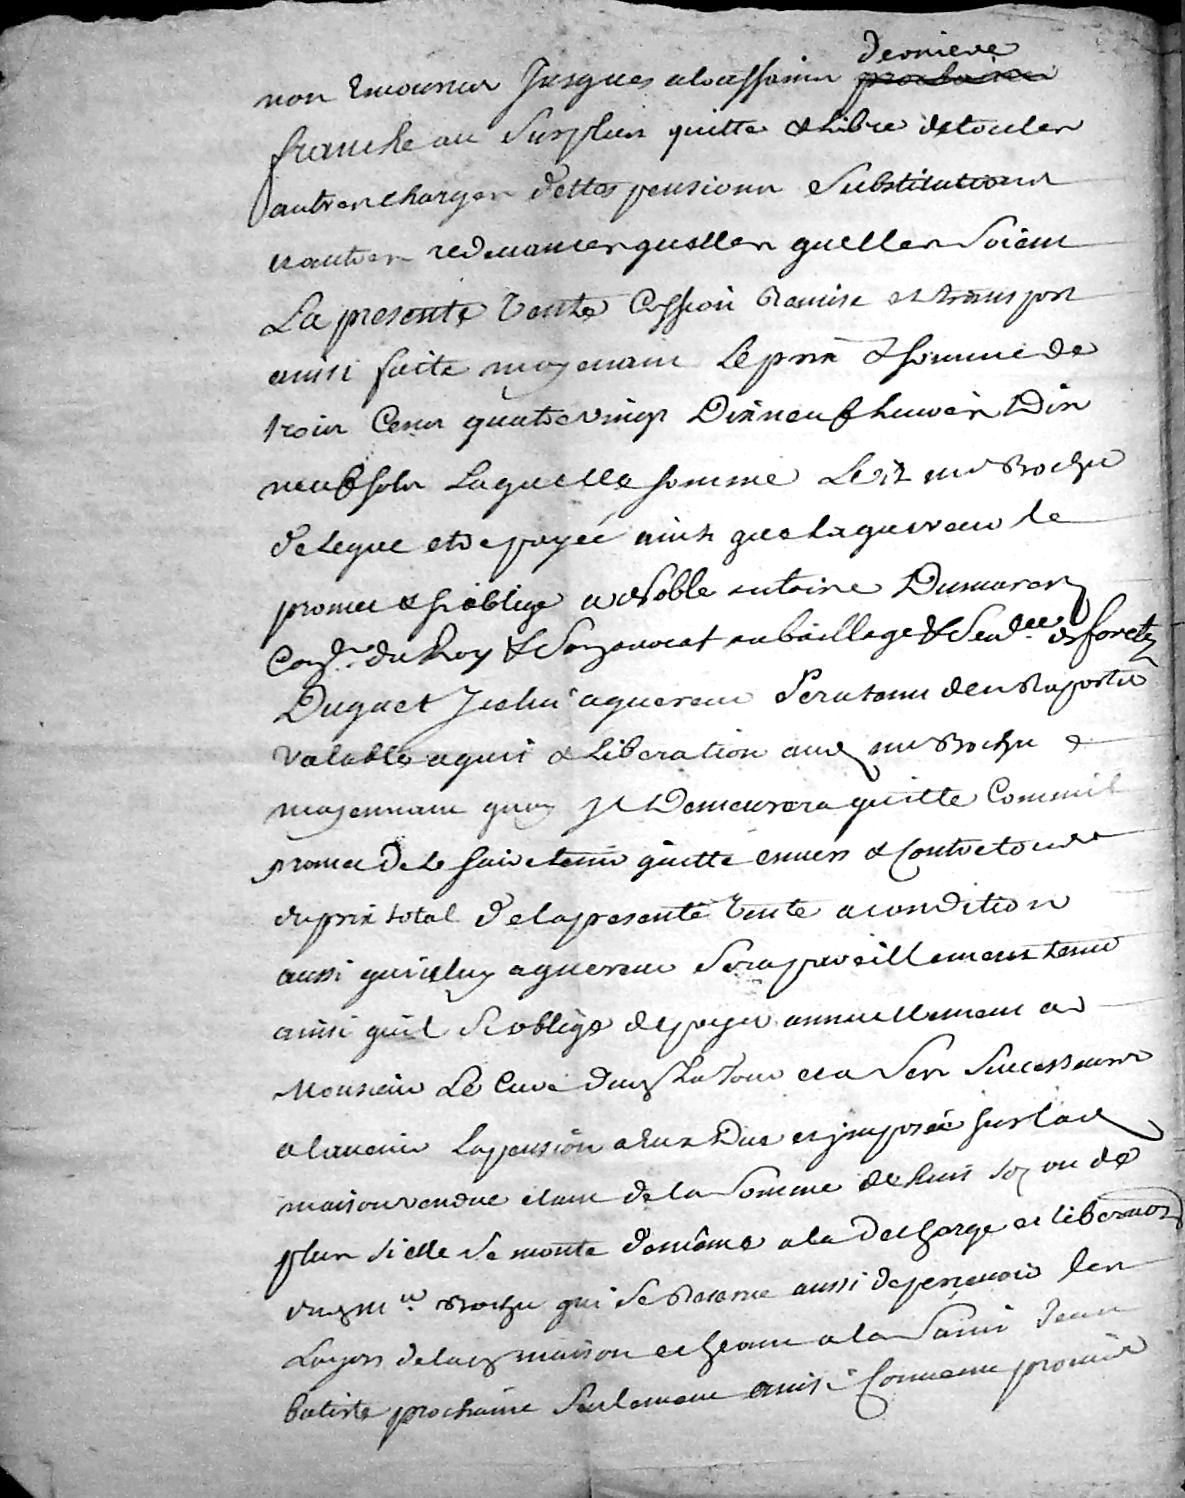 derniere
non Encourues Jusques a la st saint prochaine
franche au Surplus quitte & Libre de toutes
autres charges dettes pensions Substitutions
et autres redevances quelles quelles Soient
La presente Vente Cession Remise et transport
ainsi faite moyenant Le prix & somme de
trois Cens quatre vingt Dix neuf livres Dix
neuf sols Laquelle somme Led mr Rochu
delegue etre payée ainsi que Laquereur le
promet & s'oblige a Noble antoine Dumares
Conser du Roy & Son avocat au baillage & Senéee de foretz
Duquel Jcelui aquereur Sera tenu den Raporter
Valable aquit & Liberation aud mr Rochu &
moyennant quoy Jl Demeurera quitte Comme il
promet de le faire tenir quitte envers & Contre tous
du prix total de la presente Vente a condition
aussi que iceluy aquereur Sera pareillement tenu
ainsi quil S'oblige de payer annuellement a
Monsieur Le Curé dud La Tour et a Ses Successeurs
a lavenir La pension a Eux Due et jmposée sur lad
maison vendue etant de la Somme de huit sos ou de
plus si elle Se monte de même a la decharge et liberation
dud mr Rochu qui Se Reserve aussi de percevoir les
Loyers de lad maison echeant a la Saint Jean
batiste prochaine Seulement ainsi Convenu promis